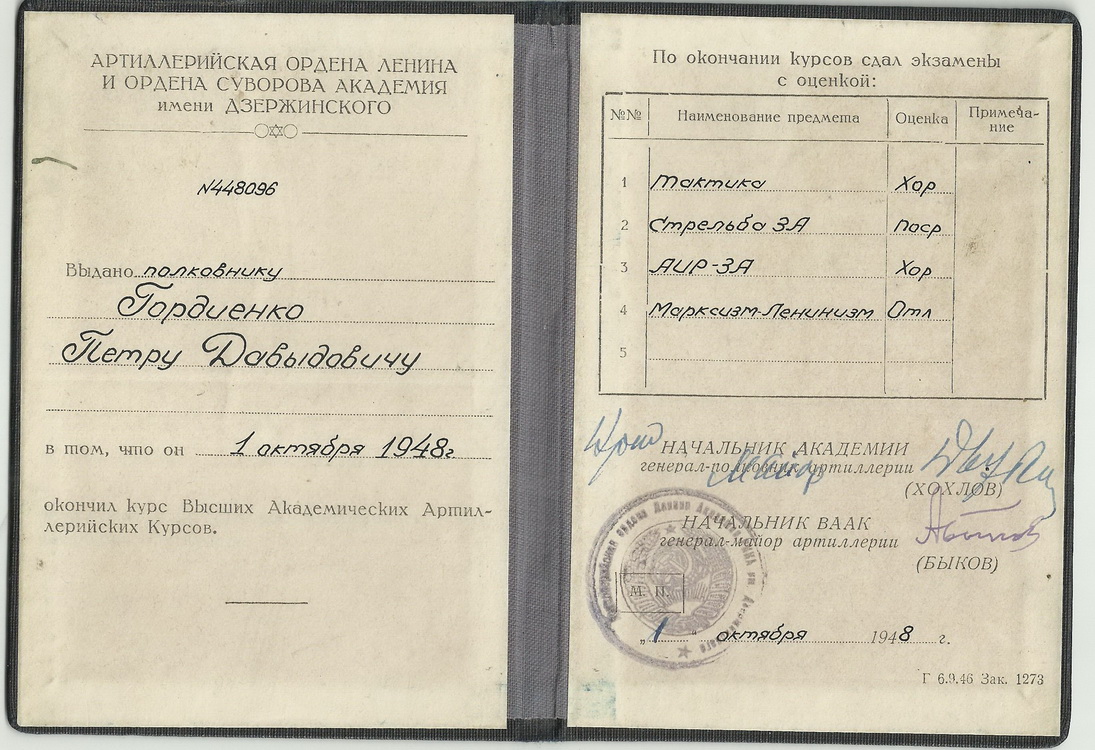 АРТИЛЛЕРИЙСКАЯ ОРДЕНА ЛЕНИНА
И ОРДЕНА СУВОРОВА АКАДЕМИЯ
имени ДЗЕРЖИНСКОГО
№448096
Выдано полковнику
Гордиенко
Петру Давыдовичу
в том, что он 1 октября 1948г
окончил курс Высших Академических Артил-
лерийских Курсов.
По окончании курсов сдал экзамены
с оценкой:
№№ Наименование предмета Оценка Примеча-
ние
1 Тактика Хор
2 Стрельба ЗА Поср
3 АИР-ЗА Хор
4 Марксизм-Ленинизм Отл
5
НАЧАЛЬНИК АКАДЕМИИ
генерал-полковник артиллерии
(ХОХЛОВ)
НАЧАЛЬНИК ВААК
генерал-майор артиллерии
(БЫКОВ)
М. П.
„1“ октября 1948 г.
Г 6.9.46 Зак. 1273